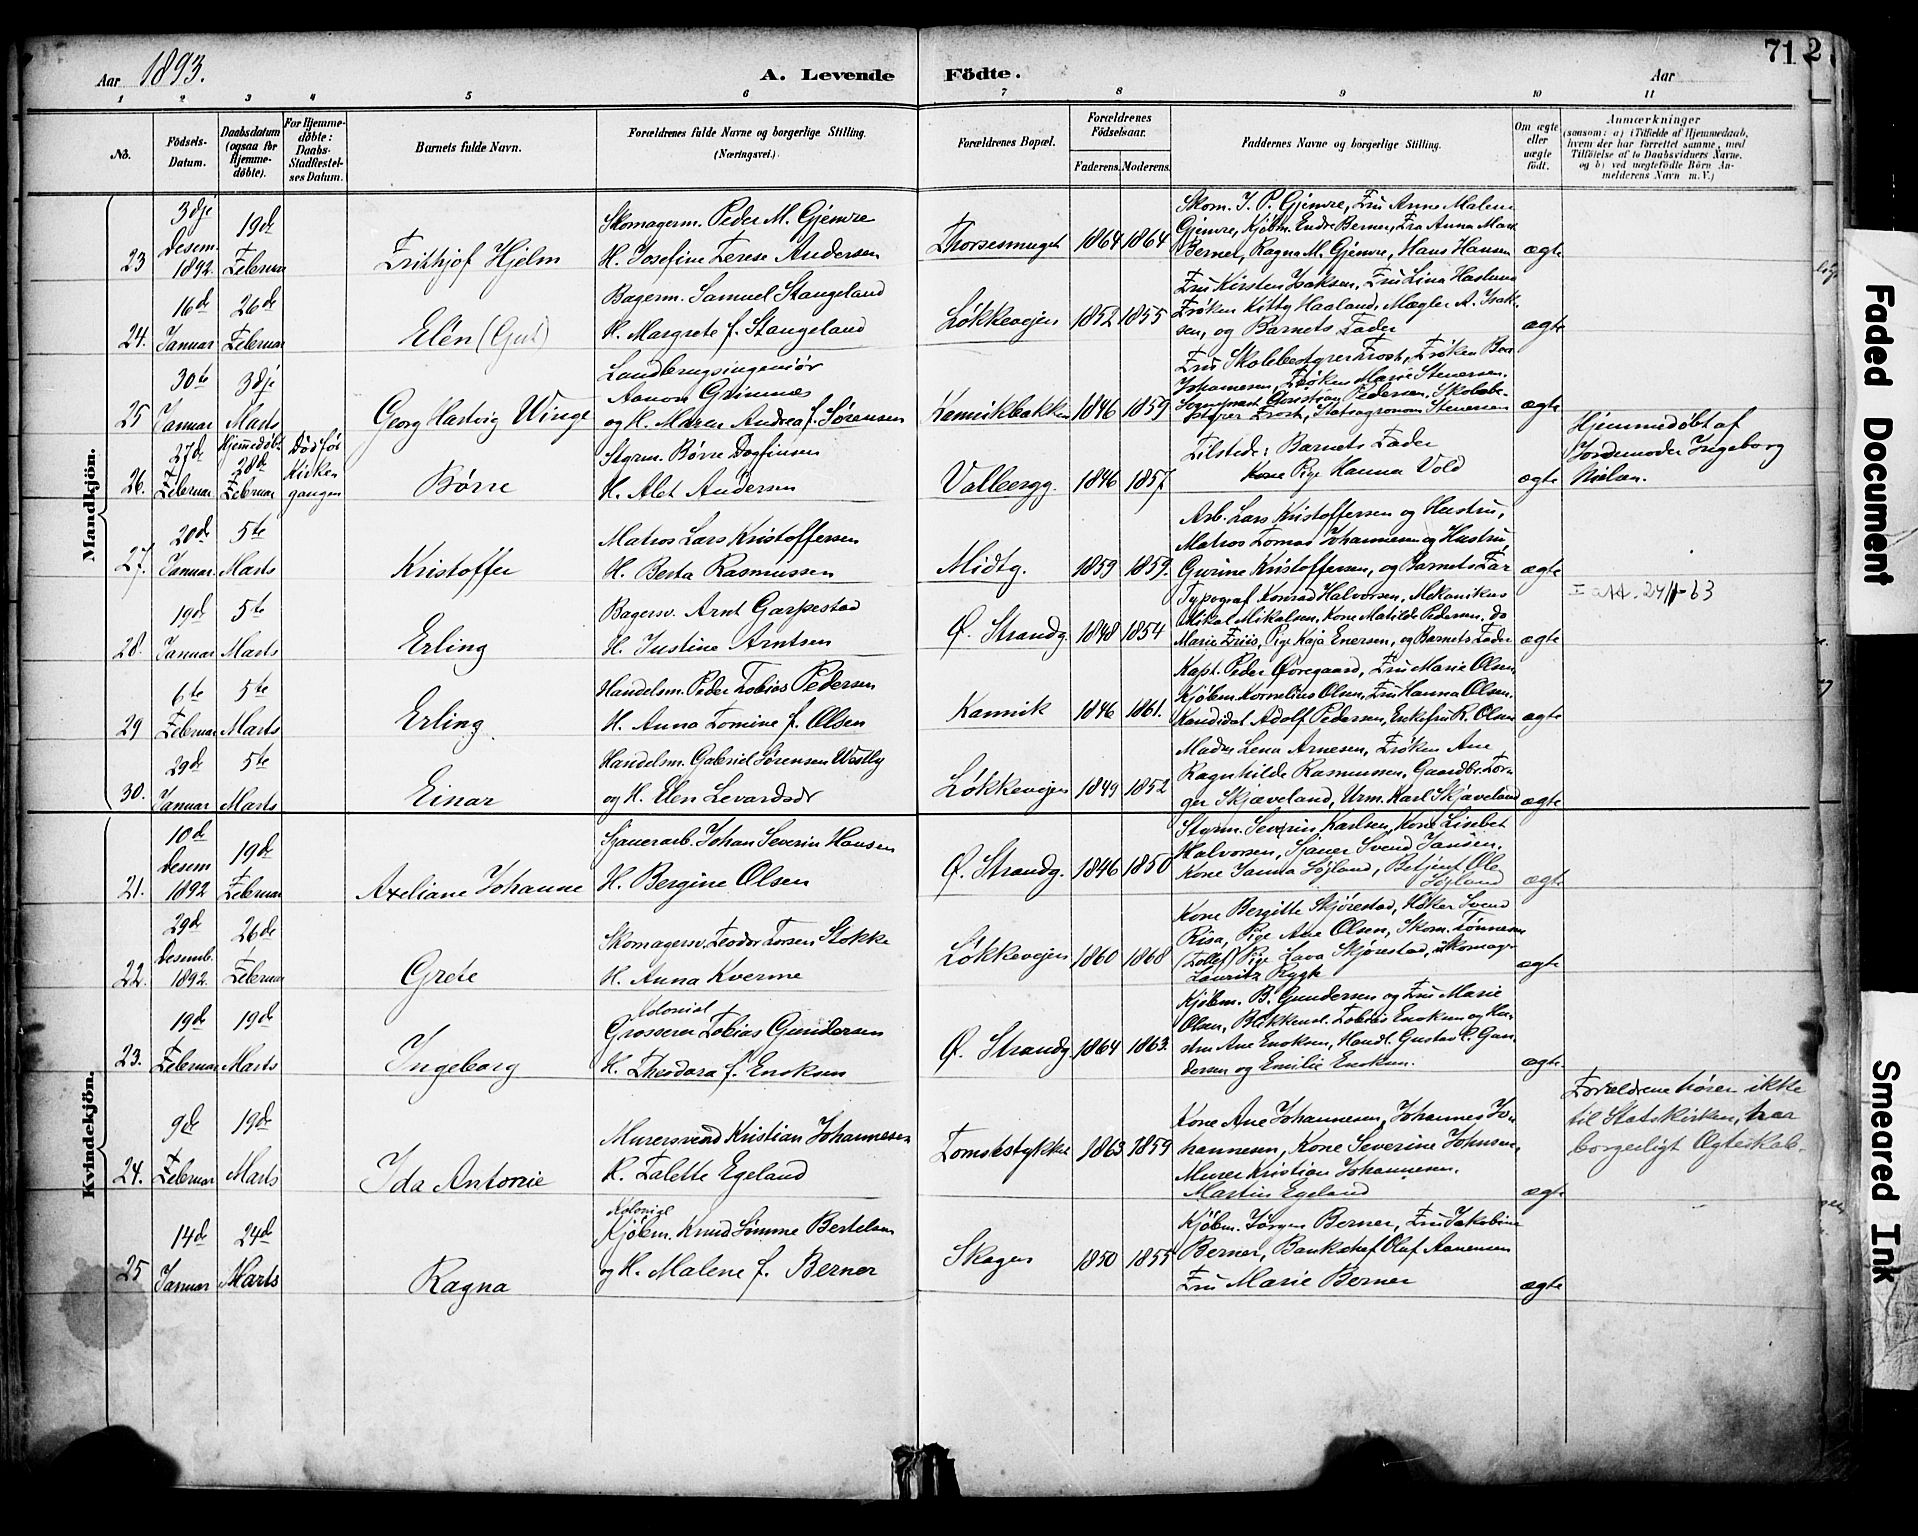 Aar 1893.
A. Levende Födte.
Aar
712
1 2 3 4 5 6 7 8 9 10 11
No.
Födsels-Datum.
Daabsdatum (ogsaa for Hjemme-døbte).
For Hjemme-døbte: Daabs-Stadfæstel-ses Datum.
Barnets fulde Navn.
Forældrenes fulde Navne og borgerlige Stilling.
(Næringsvei.)
Forældrenes Bopæl.
Forældrenes Födselsaar.
Faderens. Moderens.
Faddernes Navne og borgerlige Stilling.
Om ægte eller uægte født.
Anmærkninger
(saasom: a) i Tilfælde af Hjemmedaab,
hvem der har forrettet samme, med
Tilföielse af to Daabsvidners Navne.
og b) ved uægtefödte Börn An-
melderens Navn m. V.)
Mandkjön.
23
3dje Desem. 1892.
19de Februar
Frithjof Hjelm
Skomagerm. Peder M. Gjemre
H. Josefine Terese Andersen
Thorsesmuget
1864 1864
Skom. J. P. Gjemre, Fru Anne Malene
Gjemre, Kjøbm. Endre Berner, Fra Anna Mar.
Berner, Ragna M. Gjemre, Hans Hansen
ægte
24.
16de Januar
26de Februar
Elén (Gut)
Bagerm. Samuel Stangeland
H. Margrete f. Stangeland
Løkkevejen
1852 1855
Fru Kirsten Isaksen, Fru Lina Haaland
Frøken Kitty Haaland, Mægler A. Isak-
sen, og Barnets Fader
ægte
25
30te Januar
3dje Marts
Georg Hartvig Winge
Landbrugsingeniør
Aanon Grimnes
og H. Maren Andrea f. Sørensen
Kannikbakken
1846 1859
Fru Skolebestyrer Frost, Frøken Boa
Johannesen, Frøken Marie Stenersen.
Sogneprest Christian Pedersen, Skolebe-
styrer Frost, Statsagronom Stenersen
ægte
26.
27de Februar
Hjemmedøbt 28de Februar
Død før Kirkegangen
Børre
Styrm. Børre Dagfinsen
H. Alet Andersen
Valbergg.
1846 1857
Tilstede: Barnets Fader
Pige Hanna Vold
ægte
Hjemmedøbt af
Jordemoder Ingeborg
Nielsen.
27.
20de Januar.
5te Marts
Kristoffer
Matros Lars Kristoffersen
H. Berta Rasmussen
Midtg.
1859 1859.
Arb. Lars Kristoffersen og Hustru,
Matros Tomas Johannesen og Hustru
Gurine Kristoffersen, og Barnets Far
ægte
28.
19de Januar
5te Marts
Erling
Bagersv. Arnt Garpestad
H. Justine Arntsen
Ø. Strandg.
1848 1854
Typograf Konrad Halvorsen, Mekanikus
Mikal Mikalsen, Kone Matilde Pedersen, do
Marie Friis, Pige Kaja Enersen, og Barnets Fader
ægte
29
6te Februar
5te Marts
Erling
Handelsm. Peder Tobias Pedersen
H. Anna Tomine f. Olsen
Kannik
1846 1861.
Kapt. Peder Øvregaard, Fru Marie Olsen,
Kjøbm. Kornelius Olsen, Fru Hanna Olsen.
Kandidat Adolf Pedersen, Enkefru R. Olsen
ægte
30.
29de Januar
5te Marts
Einar
Handelsm. Gabriel Sørensen Westly
og H. Elen Levardsdr
Løkkevejen
1849 1852
Madm Lena Arnesen, Frøken Ane
Ragnhilde Rasmussen, Gaardbr. Tor-
ger Skjæveland, Urm. Karl Skjæveland
ægte
Kvindekjön.
21.
10de Desem 1892
19de Februar
Axeliane Johanne
Sjauerarb. Johan Severin Hansen
H. Bergine Olsen
Ø. Strandg.
1846 1850
Styrm. Severin Karlsen, Kone Lisebet
Halvorsen, Sjauer Svend Jansen.
Kone Janna Søyland, Betjent Ole
Søyland
ægte
22.
29de Desemb. 1892.
26de Februar
Grete
Skomagersv. Teodor Torsen Stokke
H. Anna Kverme
Løkkevejen
1860 1868
Kone Bergitte Skjørestad, Høker Svend
Risa, Pige Ane Olsen, Skom. Tønnesen
(Tollef) Pige Lava Skjørestad, Skomager
Lauritz Rygh
ægte
23.
19de Februar
19de Marts
Ingeborg
Kolonial
Grosserer Tobias Gundersen
H. Theodora f. Enoksen
Ø. Strandg
1864 1863.
Kjøbm. B. Gundersen og Fru Marie
Olsen, Blikkensl. Tobias Enoksen og Hu-
stru Ane Enoksen, Handl. Gustav E. Gun-
dersen og Emilie Enoksen.
ægte
24.
9de Februar
19de Marts
Ida Antonie
Murersvend Kristian Johannesen
H. Talette Egeland
Tomsestykket
1863 1859
Kone Ane Johannesen, Johannes Jo-
hannesen, Kone Severine Johnsen,
Murer Kristian Johannesen.
Martin Egeland
ægte
Forældrene hører ikke
til Statskirken, har
borgerligt Ægteskab.
25
14de Januar
24de Marts
Ragna
Kolonial
Kjøbm. Knud Sømme Bertelsen
og H. Malene f. Berner
Skagen
1850 1855
Kjøbm. Jørgen Berner, Fru Jakobine
Berner, Bankchef Oluf Aanensen
Fru Marie Berner
ægte
Faded Document
Smeared Ink